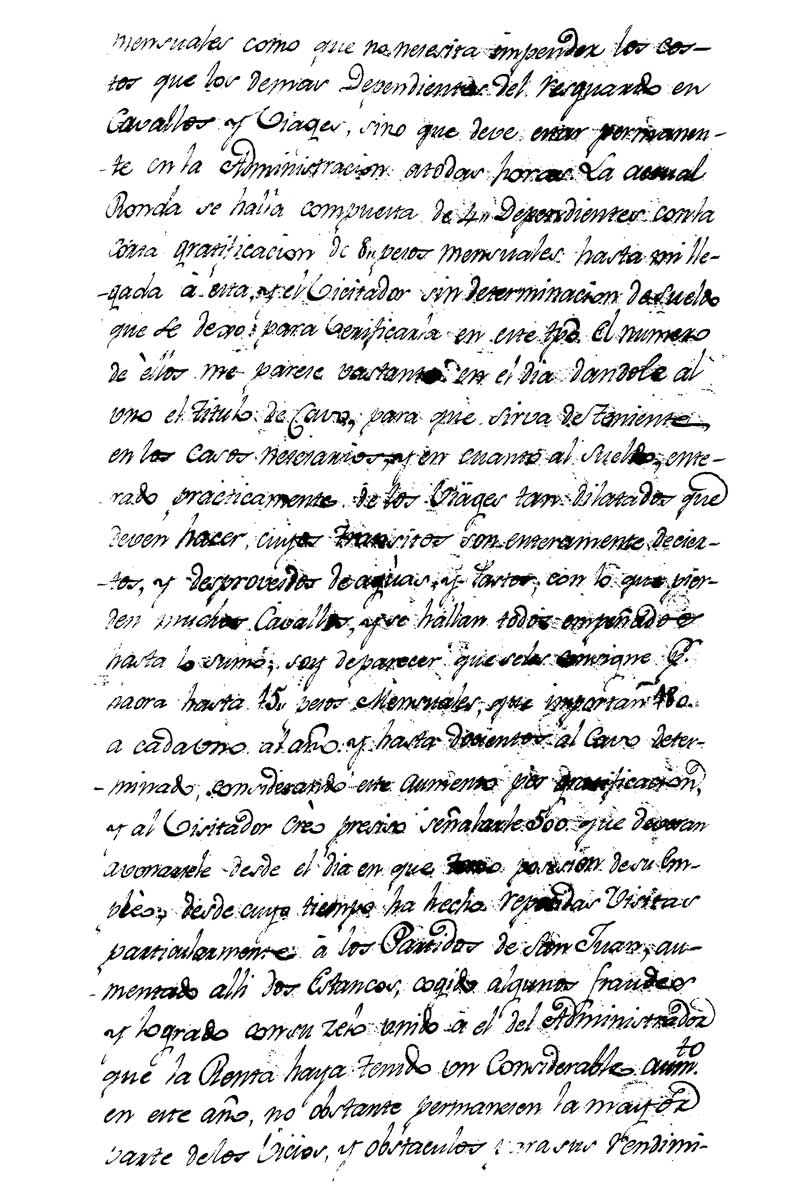 mensuales como que no necesita impender los cos-
tos que los demas Dependientes del resguardo en
Cavallos y Viages, sino que deve estar permanen-
-te en la Administracion atodas horas La actual
Ronda se halla compuesta de 4,, Dependientes conla
corta gratificacion de 8,, pesos mensuales hasta mi lle-
-gada à esta, y el Vicitador sin determinacion de sueldo
que se dexo para Verificarla en este tpõ. El numero
de èllos me parese vastante en el dia dandole al
uno el Titulo de Cavo, para que sirva de Teniente
en los casos nesesarios, y en cuanto al sueldo, ente-
rado practicamente de los Viages tan dilatados que
deven hacer, cuyos transitos son enteramente decier-
-tos, y desproveidos de aguas, y Pastos, con lo que pier-
den muchos Cavallos, y se hallan todos empeñados
hasta lo sumo; soy deparecer que seles consigne P.
haora hasta 15,, pesos Mensuales, que importan 180.
a cadauno al año y hasta docientos al Cavo deter-
- minado, considerando este aumento por gratificacion,
y al Visitador creo presiso señalarle 500 que deveran
avonarsele desde el dia en que tomo posesion desu Em-
plèo; desde cuyo tiempo ha hecho repetidas Visitas
particularmente à los Partidos de San Juan, au-
- mentado alli dos Estancos, cogido algunos fraudes
y logrado consu zelo unido a el del Administrador
que la Renta haya tenido un Considerable aum.to
en este año, no obstante permanecen la mayor
parte delos Vicios, y obstaculos para sus rendimi-